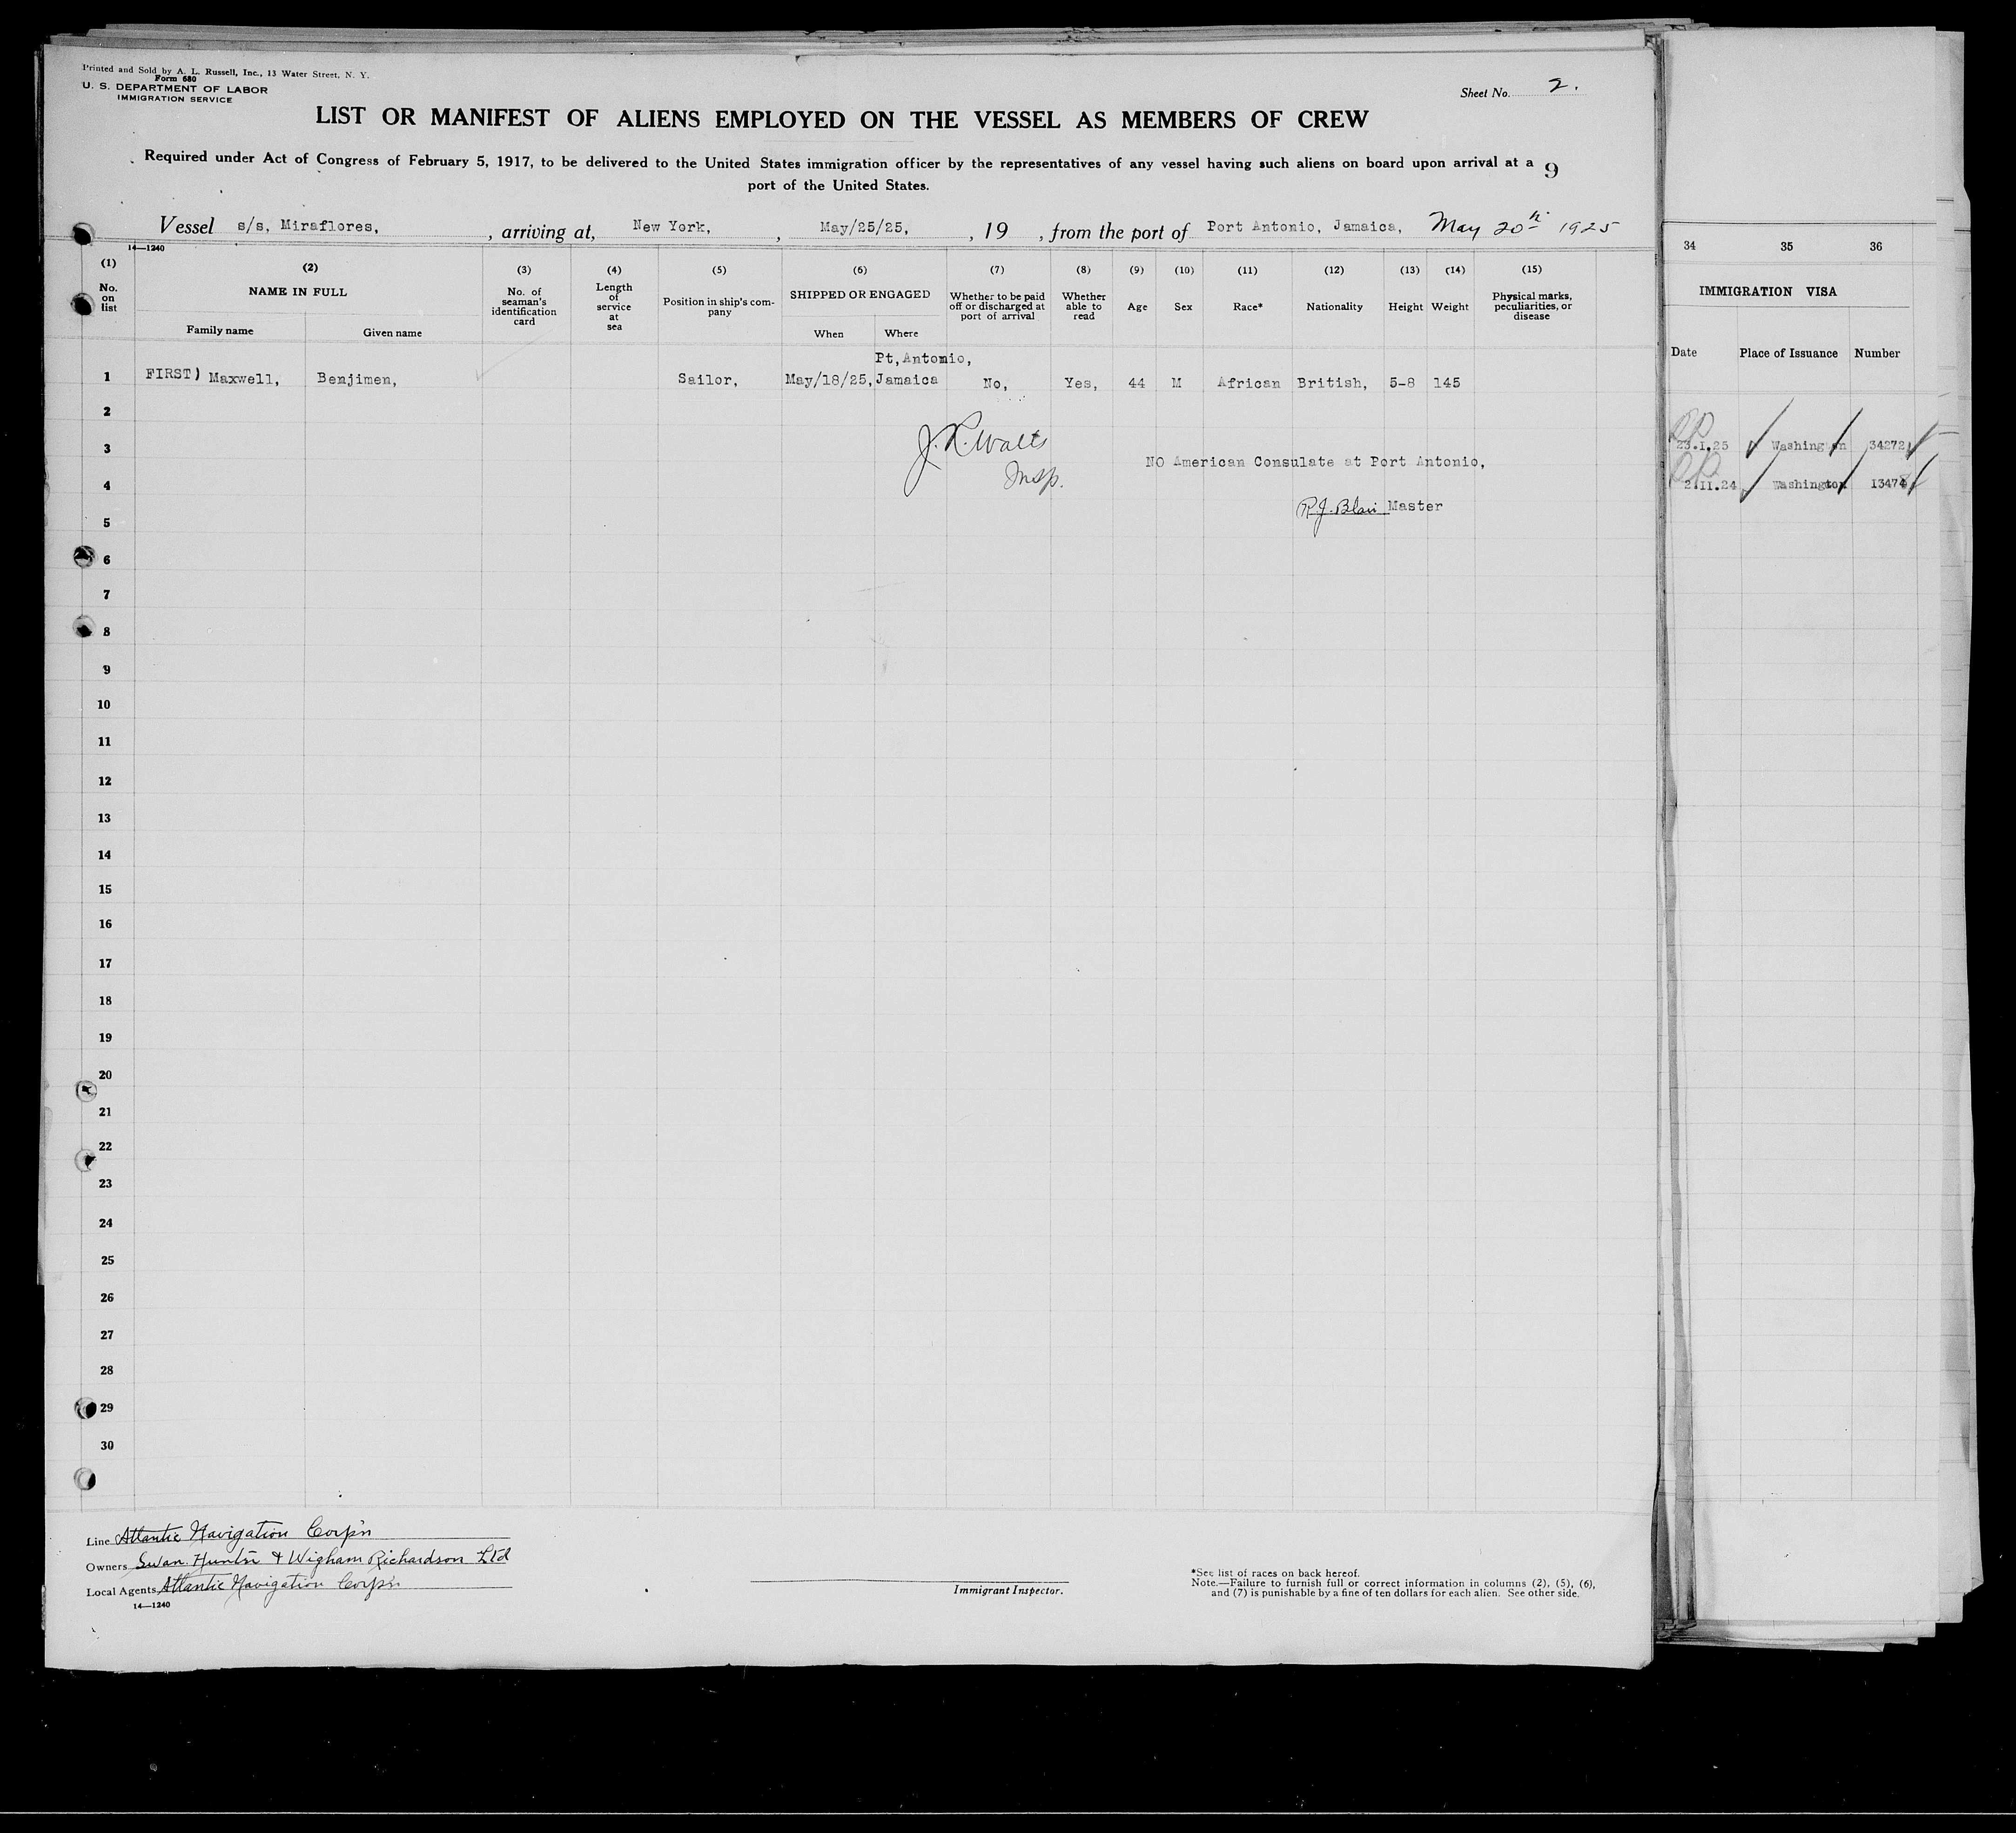 Printed and Sold by A. L. Russell, Inc., 13 Water Street, N. Y.
Form 680
U. S. DEPARTMENT OF LABOR
IMMIGRATION SERVICE
Sheet No. 2.
LIST OR MANIFEST OF ALIENS EMPLOYED ON THE VESSEL AS MEMBERS OF CREW
Required under Act of Congress of February 5, 1917, to be delivered to the United States immigration officer by the representatives of any vessel having such aliens on board upon arrival at a
port of the United States.
9
Vessel s/s, Miraflores, , arriving at, New York, , May/25/25, , 19 , from the port of Port Antonio, Jamaica, May 20th 1925
14—1240
(1) No. on list
(2) NAME IN FULL
Family name Given name
(3) No. of seaman's identification card
(4) Length of service at sea
(5) Position in ship's com-pany
(6) SHIPPED OR ENGAGED
When Where
(7) Whether to be paid off or discharged at port of arrival
(8) Whether able to read
(9) Age
(10) Sex
(11) Race*
(12) Nationality
(13) Height
(14) Weight
(15) Physical marks, peculiarities, or disease
34 35 36
IMMIGRATION VISA
Date Place of Issuance Number
Pt, Antonio,
1 FIRST) Maxwell, Benjimen, Sailor, May/18/25, Jamaica No, Yes, 44 M African British, 5-8 145
2
3
J. R. Watts
Insp.
NO American Consulate at Port Antonio,
23.1.25 Washington 34272
4
2.11.24 Washington 13474
R.J. Blair Master
5
6
7
8
9
10
11
12
13
14
15
16
17
18
19
20
21
22
23
24
25
26
27
28
29
30
Line Atlantic Navigation Corp'n
Owners Swan. Hunter & Wigham Richardson Ltd
Local Agents Atlantic Navigation Corp'n
14—1240
Immigrant Inspector.
*See list of races on back hereof.
Note.—Failure to furnish full or correct information in columns (2), (5), (6),
and (7) is punishable by a fine of ten dollars for each alien. See other side.